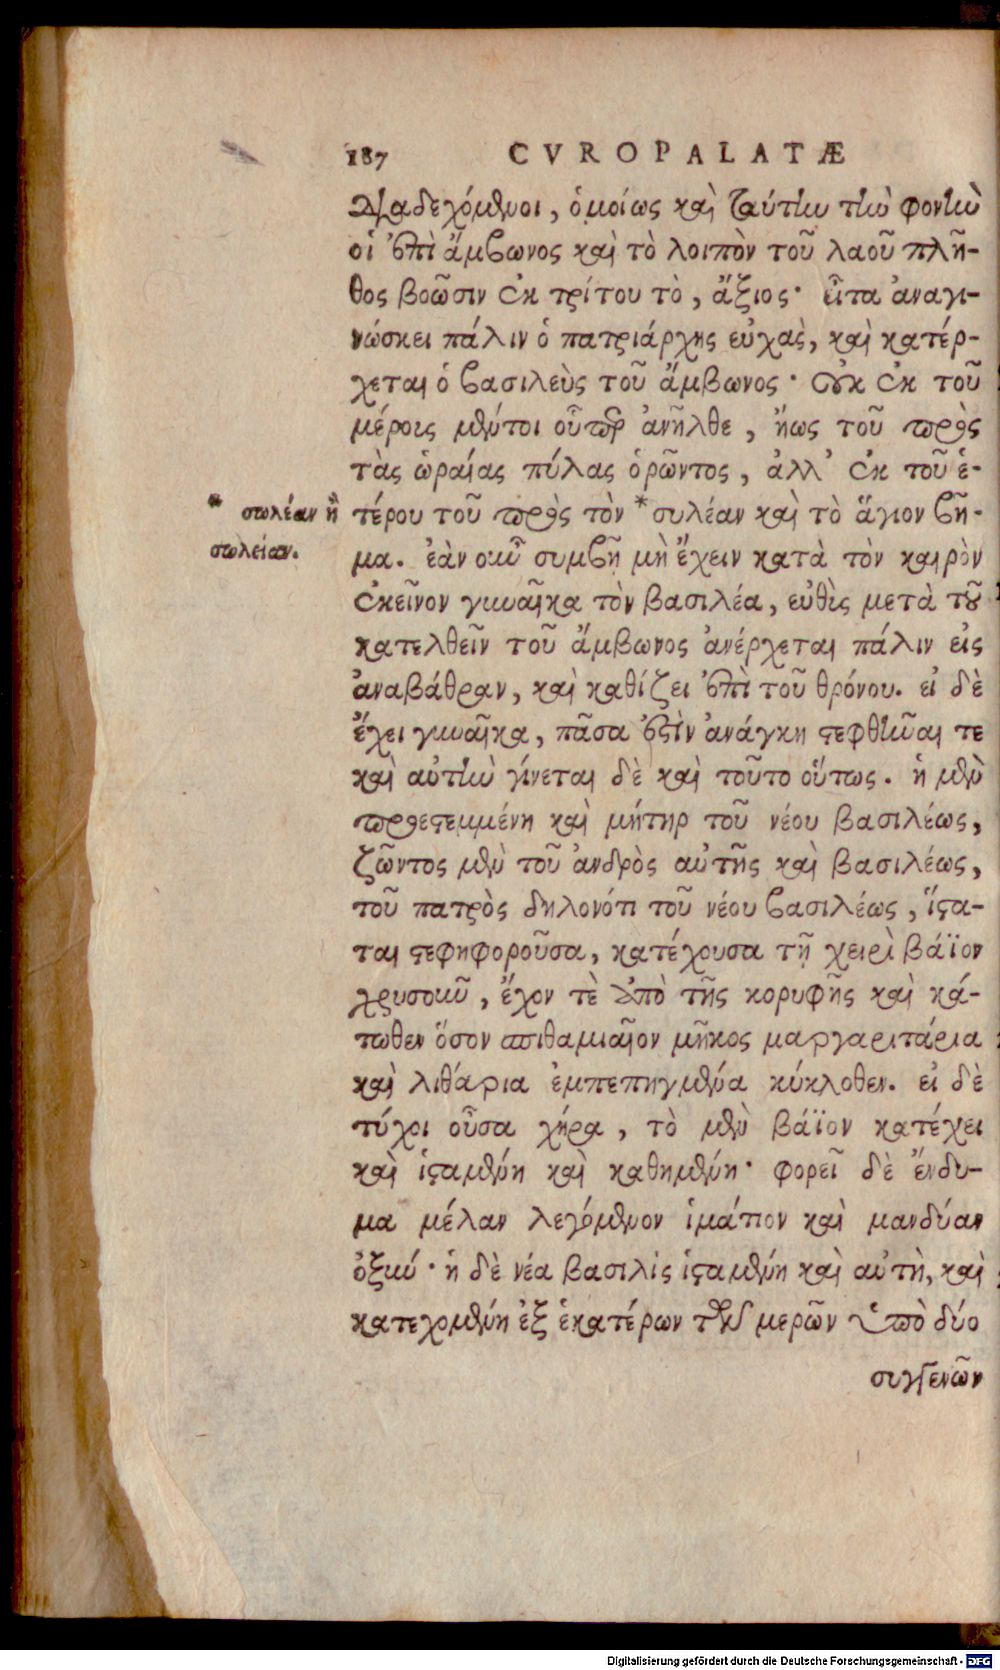 187 CVROPALATÆ
διαδεχόμενοι, ὁμοίως καὶ ταύτην τὴν φονὴν
οἱ ἐπὶ ἄμβωνος καὶ τὸ λοιπὸν τοῦ λαοῦ πλῆ-
θος βοῶσιν ἐκ τρίτου τὸ, ἄξιος· εἶτα ἀναγι-
νώσκει πάλιν ὁ πατριάρχης εὐχὰς, καὶ κατέρ-
χεται ὁ βασιλεὺς τοῦ ἄμβωνος· οὐκ ἐκ τοῦ
μέροις μέντοι οὗπερ ἀνῆλθε, ἤως τοῦ πρὸς
τὰς ὡραίας πύλας ὁρῶντος, ἀλλ' ἐκ τοῦ ἑ-
* σωλέαν ἢ
σωλείαν.
τέρου τοῦ πρὸς τὸν * συλέαν καὶ τὸ ἅγιον βῆ-
μα. ἐὰν οὖν συμβῆ μὴ ἔχειν κατὰ τὸν καιρὸν
ἐκεῖνον γυναῖκα τὸν βασιλέα, εὐθὶς μετὰ τοῦ
κατελθεῖν τοῦ ἄμβωνος ἀνέρχεται πάλιν εἰς
ἀναβάθραν, καὶ καθίζει ἐπὶ τοῦ θρόνου. εἰ δὲ
ἔχει γυναῖκα, πᾶσα ἐστὶν ἀνάγκη στεφθῆναι τε
καὶ αὐτὴν γίνεται δὲ καὶ τοῦτο οὕτως. ἡ μὲν
προεστεμμένη καὶ μήτηρ τοῦ νέου βασιλέως,
ζῶντος μὲν τοῦ ἀνδρὸς αὐτῆς καὶ βασιλέως,
τοῦ πατρὸς δηλονότι τοῦ νέου βασιλέως, ἵστα-
ται στεφηφοροῦσα, κατέχουσα τῇ χειρὶ βάϊον
χρυσοῦν, ἔχον τὲ ἀπὸ τῆς κορυφῆς καὶ κά-
τωθεν ὅσον σπιθαμιαῖον μῆκος μαργαριτάρια
καὶ λιθάρια ἐμπεπηγμένα κύκλοθεν. εἰ δὲ
τύχοι οὖσα χήρα, τὸ μὲν βάϊον κατέχει
καὶ ἱσταμένη καὶ καθημένη· φορεῖ δὲ ἔνδυ-
μα μέλαν λεγόμενον ἱμάτιον καὶ μανδύαν
ὀξύν· ἡ δὲ νέα βασιλὶς ἱσταμένη καὶ αὐτὴ, καὶ
κατεχομένη ἐξ ἑκατέρων τῶν μερῶν ὑπὸ δύο
συγγενῶν
Digitalisierung gefördert durch die Deutsche Forschungsgemeinschaft - DFG